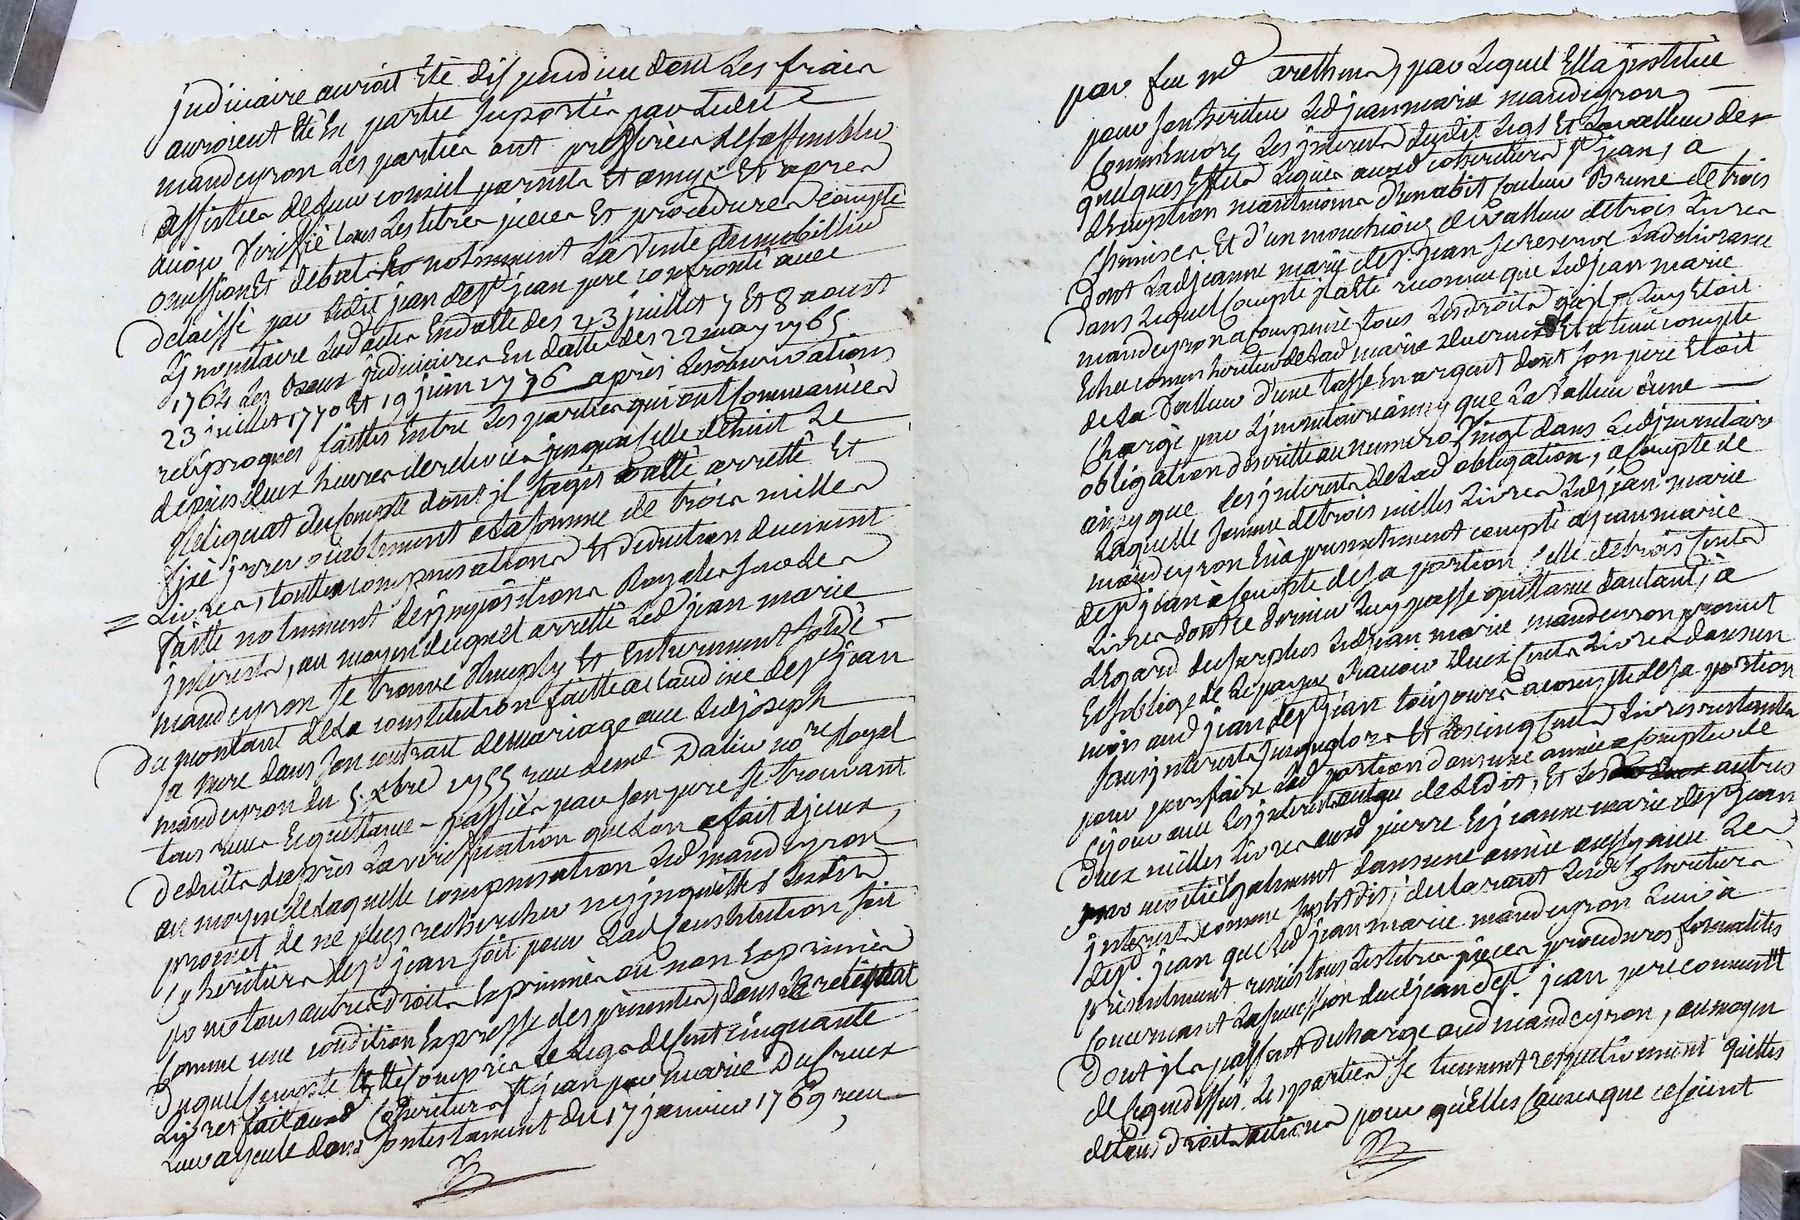 judiciaire auroit Eté dispendieu dont les fraix
auroient été En partie suportés par ledit
mandeyron les parties ont prefferées de s'assembler
assistées de leur conseil parents et amys Et apres
avoir veriffié tous les titres pieces Et procedures compté
omission Et debat notamment la vente du mobillier
delaissé par ledit jean de st jean pere confronté avec
L'jnventaire ledites En datte des 23 juillet 7 Et 8 aoust
1764 les Baux judiciaires En datte des 22 may 1765
23 juillet 1770 Et 19 juin 1776 après les observations
reciproques faittes Entre les parties qui ont commancées
depuis deux heures de relevée jusqua celle de huit Le
Reliquat du Compte dont jl s'agit a été arretté Et
fixé jrrevocablement a la somme de trois milles
Livres, touttes compensations Et deduction duement
faitte notamment des jmpositions Royales sucedes
jnterests, au moyen duquel arretté led jean marie
mandeyron se trouve Remply Et Entierement soldé
du montant de la constitution faitte a claudine de st jean
sa mere dans son contrat de mariage avec led joseph
mandeyron du 5 xbre 1755 reçu de me Dalin nore Royal
tous reçus Et quittance passées par son pere se trouvant
deduits d'après la veriffication que l'on a fait d'jceux
au moyen de laquelle compensation led mandeyron
promet de ne plus rechercher ny jnquietter lesdits
Coheritiers de st jean soit pour lad constitution soit
pour tous autres droits Exprimés ou non Exprimés
Comme une condition Expresse des présentes, dans le reliquat
Duquel Compte a Eté Compris le Legs de Cent cinquante
Livres fait aud Coheritiers st jean par marie Ducreux
Leur ayeule dans son testament du 17 janvier 1769 reçu
par feu me arethens, par lequel Elle a jnstitué
pour son heritier led jean marie mandeyron,
Comm'encore les jnterests dudit Legs Et la valleur des
quelques Effets Legués auxd coheritiers st jean, a
L'exception néantmoins d'un abit couleur Brune de trois
Chemises Et d'un mouchoir de valleur de trois Livres
Dont lad jeanne marie de st jean se reserve la delivrance
Dans Lequel Compte jl a été reconnu que led jean marie
mandeyron a comprins tous les droits qui luy Etoit
Echu comme heritier de lad marie ducreux Et a tenu compte
de la Valleur d'une tasse En argent dont son pere Etoit
Chargé par L'jnventaire ainsy que La Valleur d'une
obligation descritte au numero Vingt dans led jnventaire
ainsy que les jnterests de lad obligation, a Compte de
laquelle somme de trois milles livres led jean marie
mandeyron En a presentement compté a jean marie
de st jean a Compte de sa portion celle de trois Cents
Livres dont ce dernier luy passe quittance d'autant, à
L'egard du surplus led jean marie mandeyron promet
Et s'oblige de le payer sçavoir deux Cents livres dans un
mois aud jean de st jean toujours a compte de sa portion
sans jnterests jusqu'alors Et les cinq Cents livres restantes
pour parfaire lad portion dans une année a Compter de
ce jour avec les jnterests au taux de l'Edit, Et les autres
Deux milles Livres auxd pierre Et jeanne marie de st jean
par moitié Egalement dans une année aussy avec les
jnterests comme susdit, declarant lesd Coheritiers
de st jean que led jean marie mandeyron leur a
presentement remis tous les titres pièces procedures formalités
Concernant la succession dud jean de st jean pere commun
Dont jls passent decharge aud mandeyron, au moyen
de ce que dessus les parties se tiennent respectivement quittes
de tous droits actions pour quelles Causes que ce soient